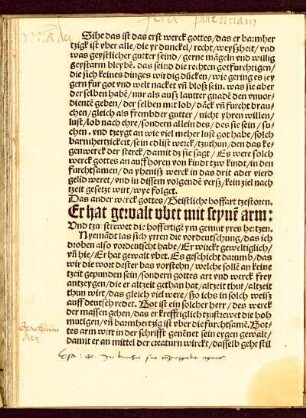 Sihe das ist das erst werck gottes/das er barmher
tzigk ist vber alle/die yr dunckel/recht/weyßheit/vnd
was geystlicher gutter seind/gerne mägeln vnd willig
geystarm bleybē. das seind die rechten gotfurchtigen/
die sich keines dinges wirdig dücken/wie gering es sey
gern fur got vnd welt nacket vñ bloß sein. was sie aber
der selben habē/nur als auß lautter gnadē dn vnuor-
dientē geben/der selben mit lob/däck vñ furcht brau-
chen/gleich als frembder gutter/nicht yhren willen/
lust/lob nach ehre/sondern allein des/des sie sein/su-
chen. vnd tzeygt an wie viel meher lust got habe/solch
barmhertzickeit/sein edlist werck/tzuthun/den das ke-
genwerck der sterck/damit do sie sagt/Es were solch
werck gottes an auffhoren von kindt tzu kindt/in den
furchtsamen/
geld weret/vnd in dissem volgendē verß/kein ziel nach
zeit gesetzt wirt/wye folget.
Das ander werck gottes/Geistliche hoffart zcestoren.
Er hat gewalt vbet mit seynē arm:
Vnd tzu strewet die hoffertigē ym gemut yres hertzen.
Nyemandt las sich yrren die vordeutschung/das ich
droben also vordeutscht habe/Er wircket geweltiglich/
vñ hie/Er hat gewalt vbet. Es geschicht daumb/das
wir die wort disser das vorstehen/welche solle an keine
zeit gepunden sein/sondern gottes art vnd werck frey
antzeygen/die er altzeit gethan hat/altzeit thut/altzeit
thun wirt/das gleich viel were/so ichs in solch weyß
auff deutsch redet. Got ist ein solcher herr/des werck
der massen gehen/das er krefftiglich tzustrewet die hoh
mutigen/vñ barmhertzig ist vber die furchtsamē. Got-
tes arm wirt in der schrifft genēnet sein eygen gewalt/
damit er an mittel der creaturn wirckt/dasselb geht stil